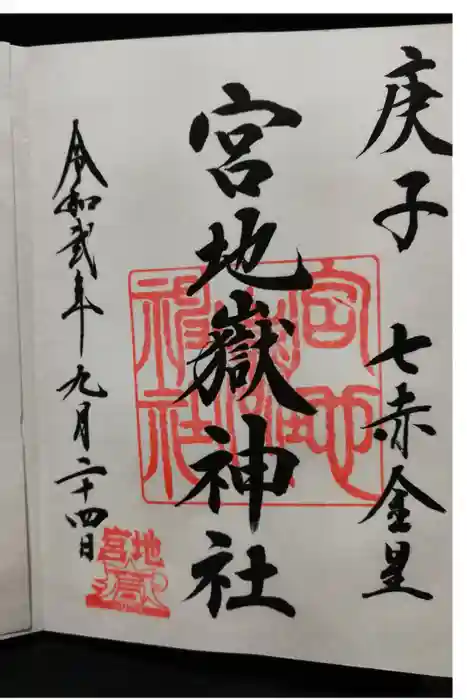 庚子 七赤金星
宮地嶽神社
令和弐年九月二十四日
宮地嶽神社
宮地嶽